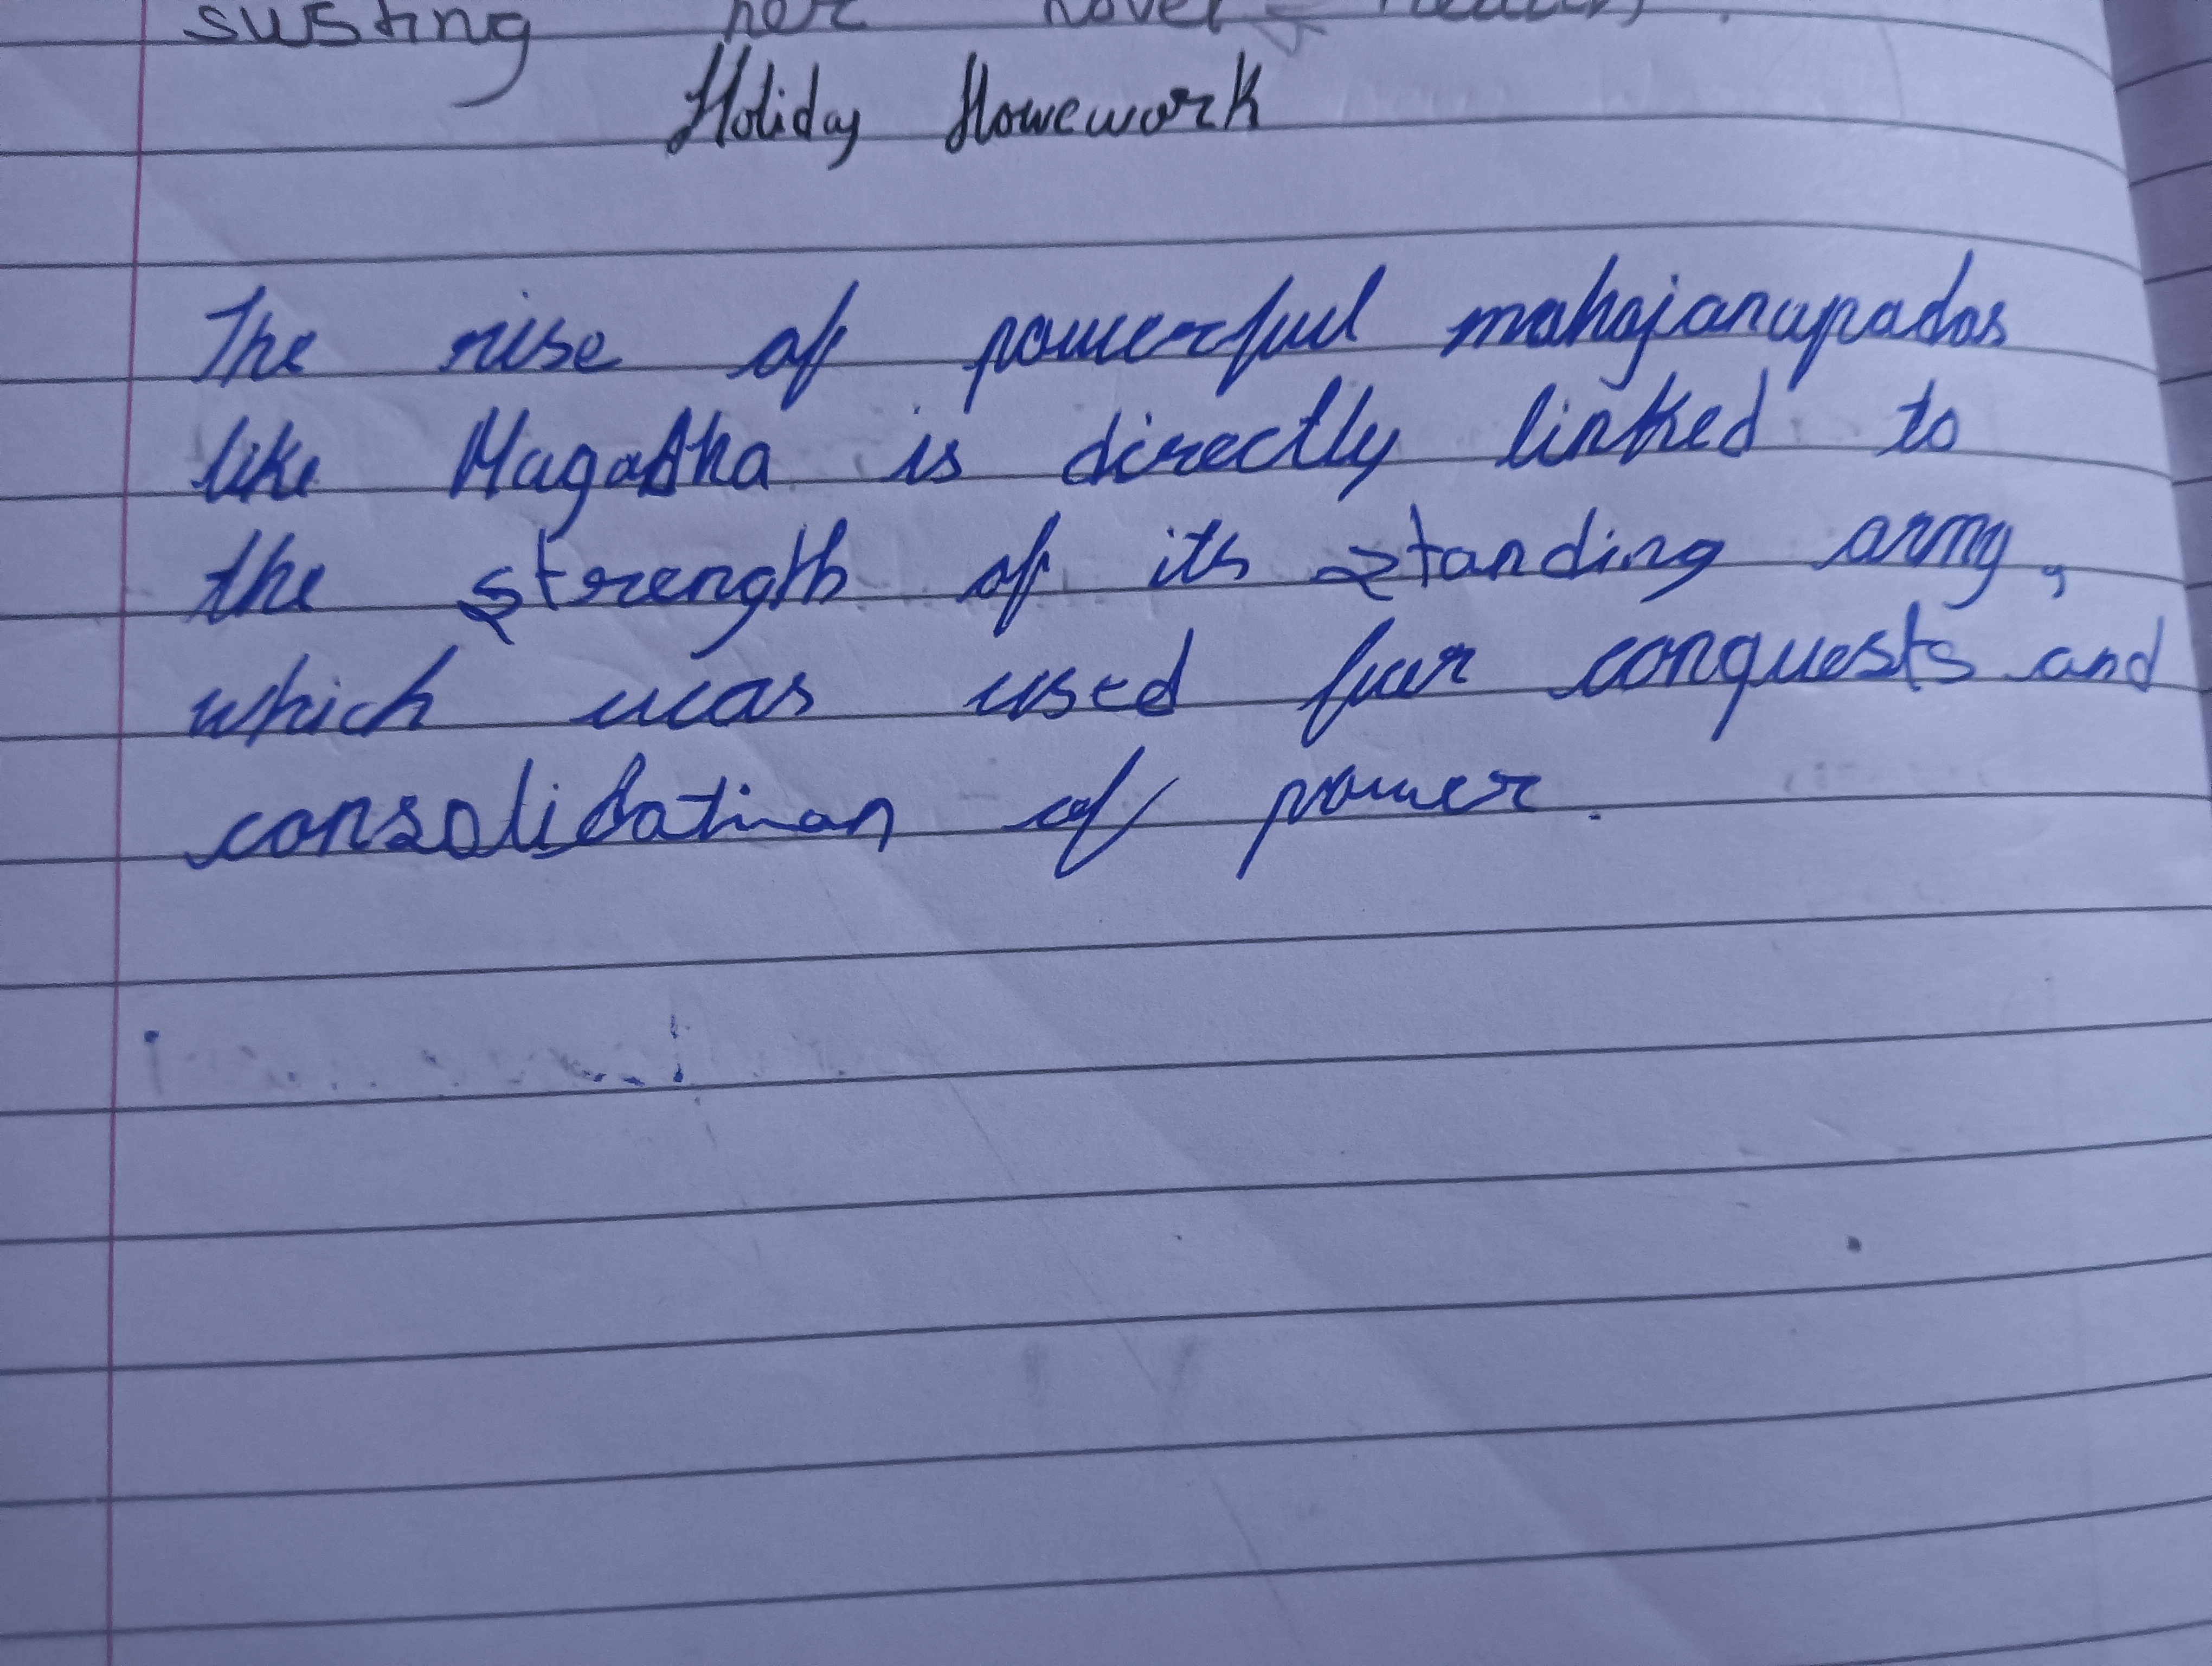 susting her novel
Holiday Homework
The rise of powerful mahajanapadas
like Magadha is directly linked to
the strength of its standing army,
which was used for conquests and
consolidation of power.